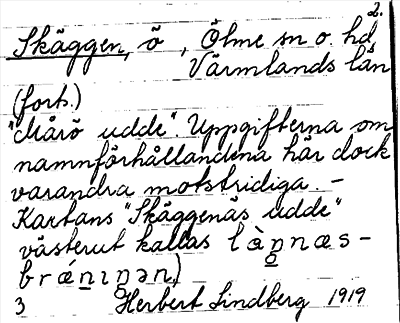 2.
Skäggen, ö , Ölme sn o. hd,
Värmlands län
(forts.)
"Mårö udde". Uppgifterna om
namnförhållandena här dock
varandra motstridiga. –
Kartans "Skäggenäs udde"
västerut kallas làŋnæs-
brǽnıŋən)
3 Herbert Lindberg 1919